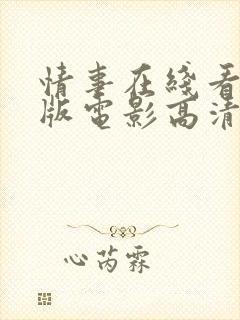 情事在线看
版电影高清
心芮霖